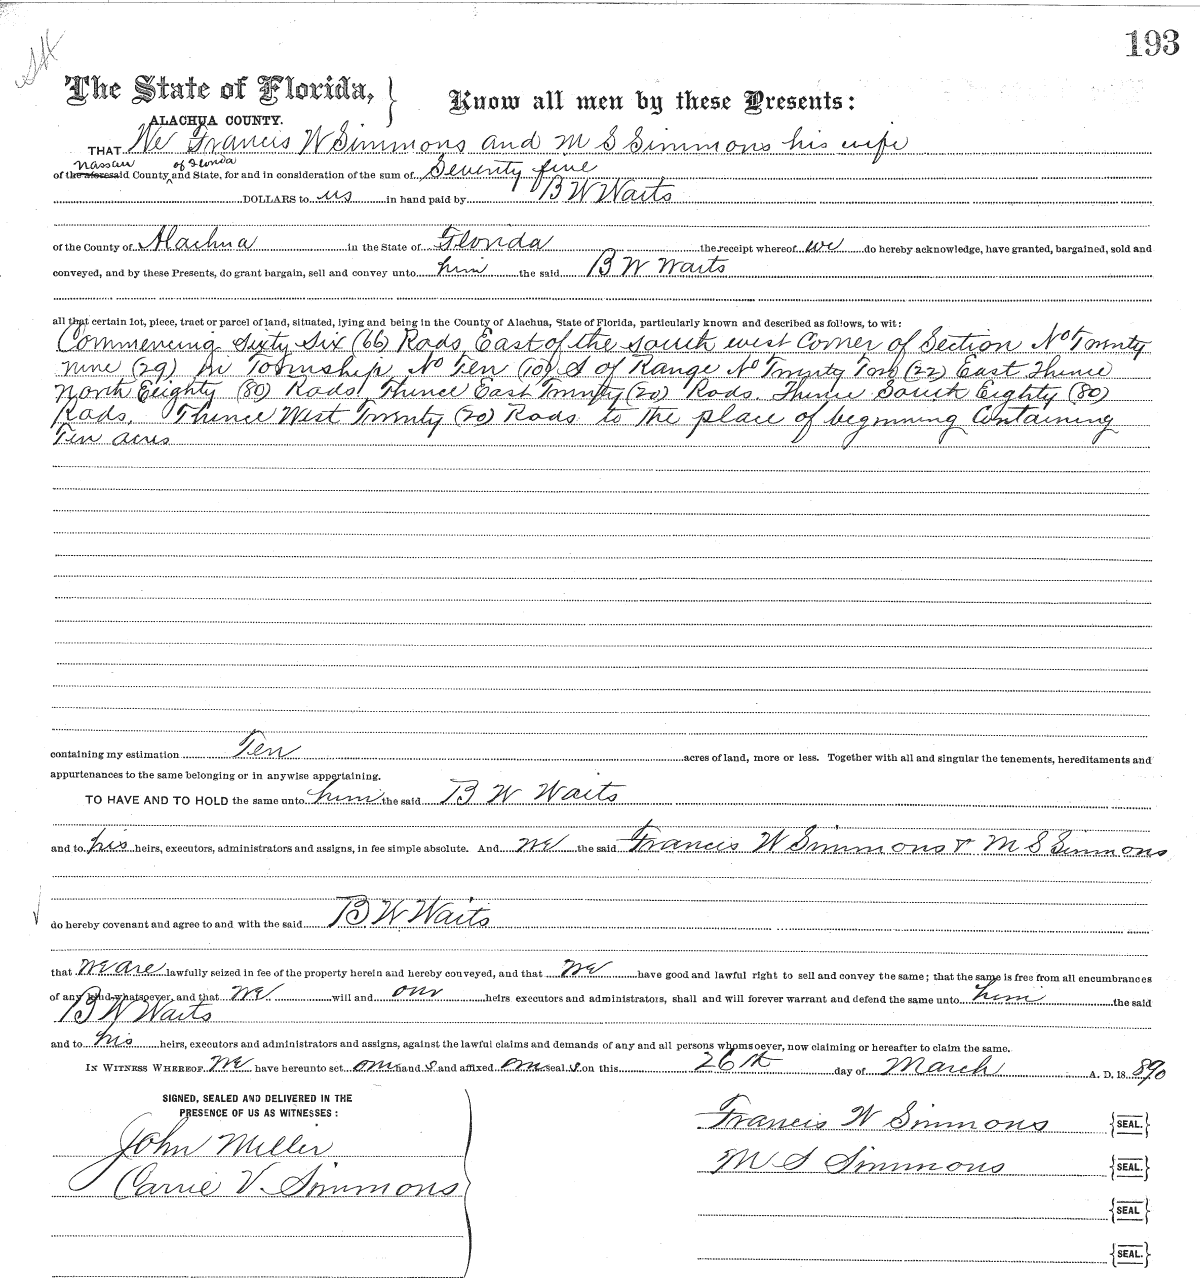 193
The State of Florida, } Know all men by these Presents:
ALACHUA COUNTY.
THAT We Francis W Simmons and M S Simmons his wife
Nassau of Florida
of the aforesaid County and State, for and in consideration of the sum of Seventy five
DOLLARS to us in hand paid by B W Waits
of the County of Alachua in the State of Florida the receipt whereof we do hereby acknowledge, have granted, bargained, sold and
conveyed, and by these Presents, do grant bargain, sell and convey unto him the said B W Waits
all that certain lot, piece, tract or parcel of land, situated, lying and being in the County of Alachua, State of Florida, particularly known and described as follows, to wit:
Commencing Sixty Six (66) Rods East of the South west Corner of Section No Twenty
nine (29) in Township No Ten (10) S of Range No Twenty Two (22) East Thence
North Eighty (80) Rods, Thence East Twenty (20) Rods. Thence South Eighty (80)
Rods. Thence West Twenty (20) Rods to the place of beginning Containing
Ten acres
containing my estimation Ten acres of land, more or less. Together with all and singular the tenements, hereditaments and
appurtenances to the same belonging or in anywise appertaining.
TO HAVE AND TO HOLD the same unto him the said B W Waits
and to his heirs, executors, administrators and assigns, in fee simple absolute. And we the said Francis W Simmons & M S Simmons
do hereby covenant and agree to and with the said B W Waits
that we are lawfully seized in fee of the property herein and hereby conveyed, and that we have good and lawful right to sell and convey the same; that the same is free from all encumbrances
of any kind whatsoever, and that we will and our heirs executors and administrators, shall and will forever warrant and defend the same unto him the said
B W Waits
and to his heirs, executors and administrators and assigns, against the lawful claims and demands of any and all persons whomsoever, now claiming or hereafter to claim the same.
IN WITNESS WHEREOF we have hereunto set our hand s and affixed our seal s on this 26th day of March A. D. 18 890
SIGNED, SEALED AND DELIVERED IN THE
PRESENCE OF US AS WITNESSES:
Francis W Simmons {SEAL.}
John Miller
M S Simmons {SEAL.}
Carrie V. Simmons
{SEAL.}
{SEAL.}